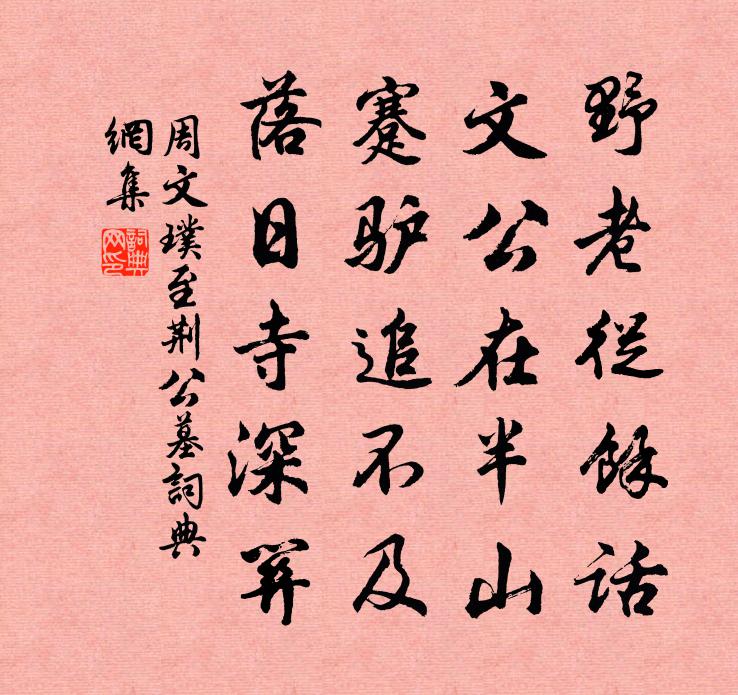 野老從餘話
文公在半山
蹇驴追不及
落日寺深關
周文璞至荆公墓詞典
網集
詞典
网印